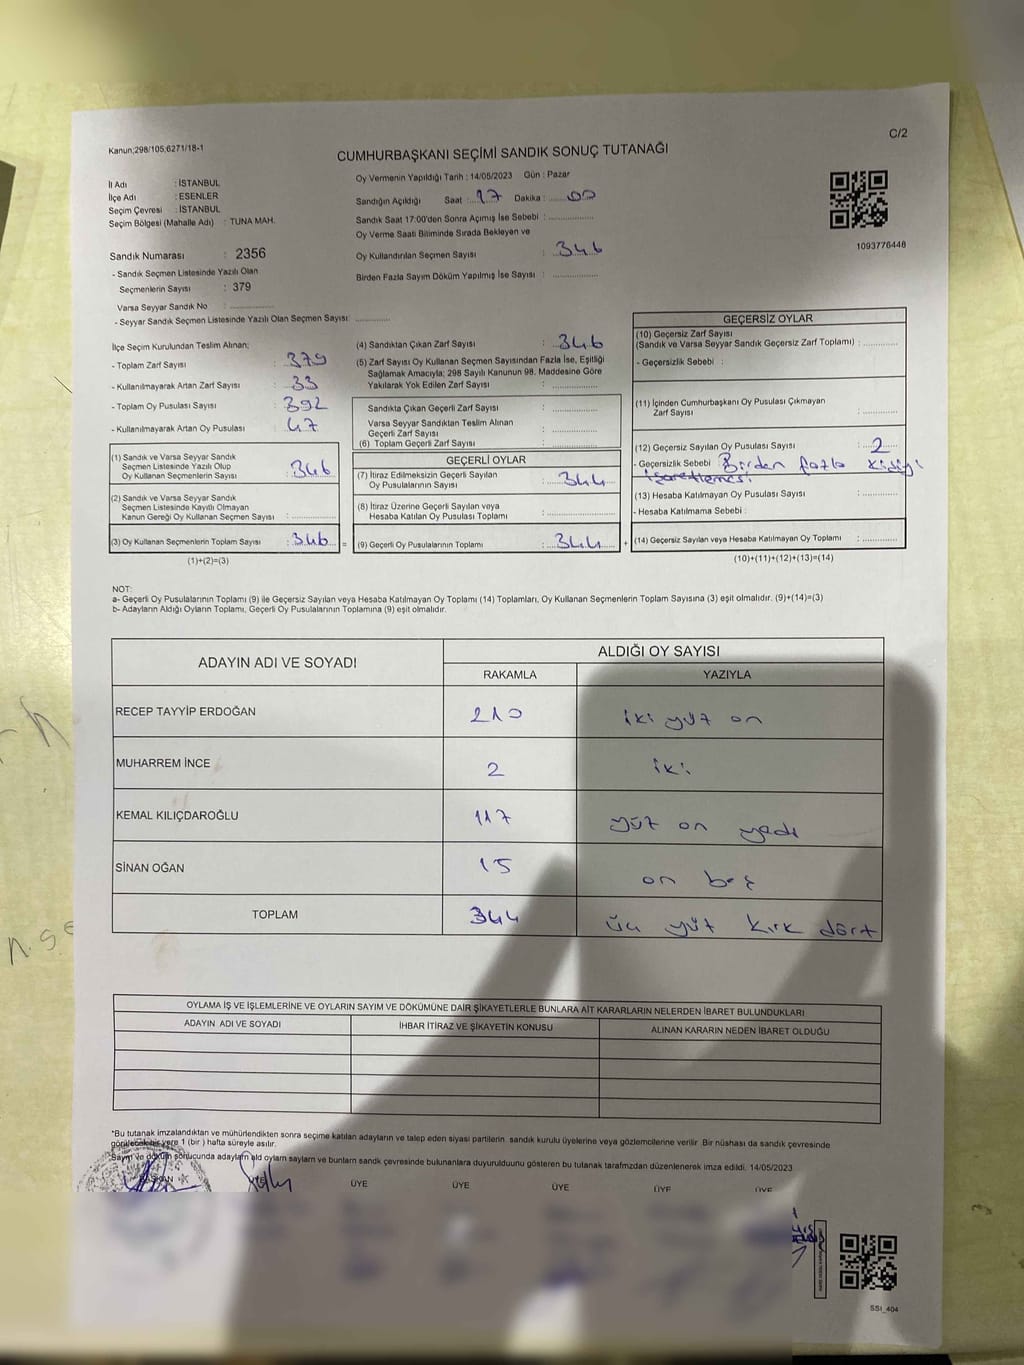 Kanun;298/105;6271/18-1
C/2
CUMHURBAŞKANI SEÇİMİ SANDIK SONUÇ TUTANAĞI
İl Adı : İSTANBUL
İlçe Adı : ESENLER
Seçim Çevresi : İSTANBUL
Seçim Bölgesi (Mahalle Adı) : TUNA MAH.
Sandık Numarası : 2356
- Sandık Seçmen Listesinde Yazılı Olan
Seçmenlerin Sayısı : 379
Varsa Seyyar Sandık No :
- Seyyar Sandık Seçmen Listesinde Yazılı Olan Seçmen Sayısı:
Oy Vermenin Yapıldığı Tarih : 14/05/2023 Gün : Pazar
Sandığın Açıldığı Saat : 17 Dakika : 00
Sandık Saat 17:00'den Sonra Açımış İse Sebebi :
Oy Verme Saati Bitiminde Sırada Bekleyen ve
Oy Kullandırılan Seçmen Sayısı : 346
Birden Fazla Sayım Döküm Yapılmış İse Sayısı :
1093776448
İlçe Seçim Kurulundan Teslim Alınan;
- Toplam Zarf Sayısı : 379
- Kullanılmayarak Artan Zarf Sayısı : 33
- Toplam Oy Pusulası Sayısı : 392
- Kullanılmayarak Artan Oy Pusulası : 47
(1) Sandık ve Varsa Seyyar Sandık
Seçmen Listesinde Yazılı Olup
Oy Kullanan Seçmenlerin Sayısı : 346
(2) Sandık ve Varsa Seyyar Sandık
Seçmen Listesinde Kayıtlı Olmayan
Kanun Gereği Oy Kullanan Seçmen Sayısı :
(3) Oy Kullanan Seçmenlerin Toplam Sayısı : 346 =
(1)+(2)=(3)
(4) Sandıktan Çıkan Zarf Sayısı : 346
(5) Zarf Sayısı Oy Kullanan Seçmen Sayısından Fazla İse, Eşitliği
Sağlamak Amacıyla; 298 Sayılı Kanunun 98. Maddesine Göre
Yakılarak Yok Edilen Zarf Sayısı :
Sandıkta Çıkan Geçerli Zarf Sayısı :
Varsa Seyyar Sandıktan Teslim Alınan
Geçerli Zarf Sayısı :
(6) Toplam Geçerli Zarf Sayısı :
GEÇERLİ OYLAR
(7) İtiraz Edilmeksizin Geçerli Sayılan
Oy Pusulalarının Sayısı : 344
(8) İtiraz Üzerine Geçerli Sayılan veya
Hesaba Katılan Oy Pusulası Toplamı :
(9) Geçerli Oy Pusulalarının Toplamı : 344 +
GEÇERSİZ OYLAR
(10) Geçersiz Zarf Sayısı
(Sandık ve Varsa Seyyar Sandık Geçersiz Zarf Toplamı) :
- Geçersizlik Sebebi :
(11) İçinden Cumhurbaşkanı Oy Pusulası Çıkmayan
Zarf Sayısı :
(12) Geçersiz Sayılan Oy Pusulası Sayısı : 2
- Geçersizlik Sebebi Birden fazla kişiyi
işaretlemesi
(13) Hesaba Katılmayan Oy Pusulası Sayısı :
- Hesaba Katılmama Sebebi :
(14) Geçersiz Sayılan veya Hesaba Katılmayan Oy Toplamı :
(10)+(11)+(12)+(13)=(14)
NOT:
a- Geçerli Oy Pusulalarının Toplamı (9) ile Geçersiz Sayılan veya Hesaba Katılmayan Oy Toplamı (14) Toplamları, Oy Kullanan Seçmenlerin Toplam Sayısına (3) eşit olmalıdır. (9)+(14)=(3)
b- Adayların Aldığı Oyların Toplamı, Geçerli Oy Pusulalarının Toplamına (9) eşit olmalıdır.
ADAYIN ADI VE SOYADI
ALDIĞI OY SAYISI
RAKAMLA YAZIYLA
RECEP TAYYİP ERDOĞAN 210 iki yüz on
MUHARREM İNCE 2 iki
KEMAL KILIÇDAROĞLU 117 yüz on yedi
SİNAN OĞAN 15 on beş
TOPLAM 344 üç yüz kırk dört
OYLAMA İŞ VE İŞLEMLERİNE VE OYLARIN SAYIM VE DÖKÜMÜNE DAİR ŞİKAYETLERLE BUNLARA AİT KARARLARIN NELERDEN İBARET BULUNDUKLARI
ADAYIN ADI VE SOYADI İHBAR İTİRAZ VE ŞİKAYETİN KONUSU ALINAN KARARIN NEDEN İBARET OLDUĞU
*Bu tutanak imzalandıktan ve mühürlendikten sonra seçime katılan adayların ve talep eden siyasi partilerin sandık kurulu üyelerine veya gözlemcilerine verilir. Bir nüshası da sandık çevresinde
görülecek bir yere 1 (bir ) hafta süreyle asılır.
Sayım ve döküm sonucunda adayların ald oyların sayların ve bunların sandık çevresinde bulunanlara duyurulduunu gösteren bu tutanak tarafmzdan düzenlenerek imza edildi. 14/05/2023
BAŞKAN ÜYE ÜYE ÜYE ÜYE ÜYE
SSI_404